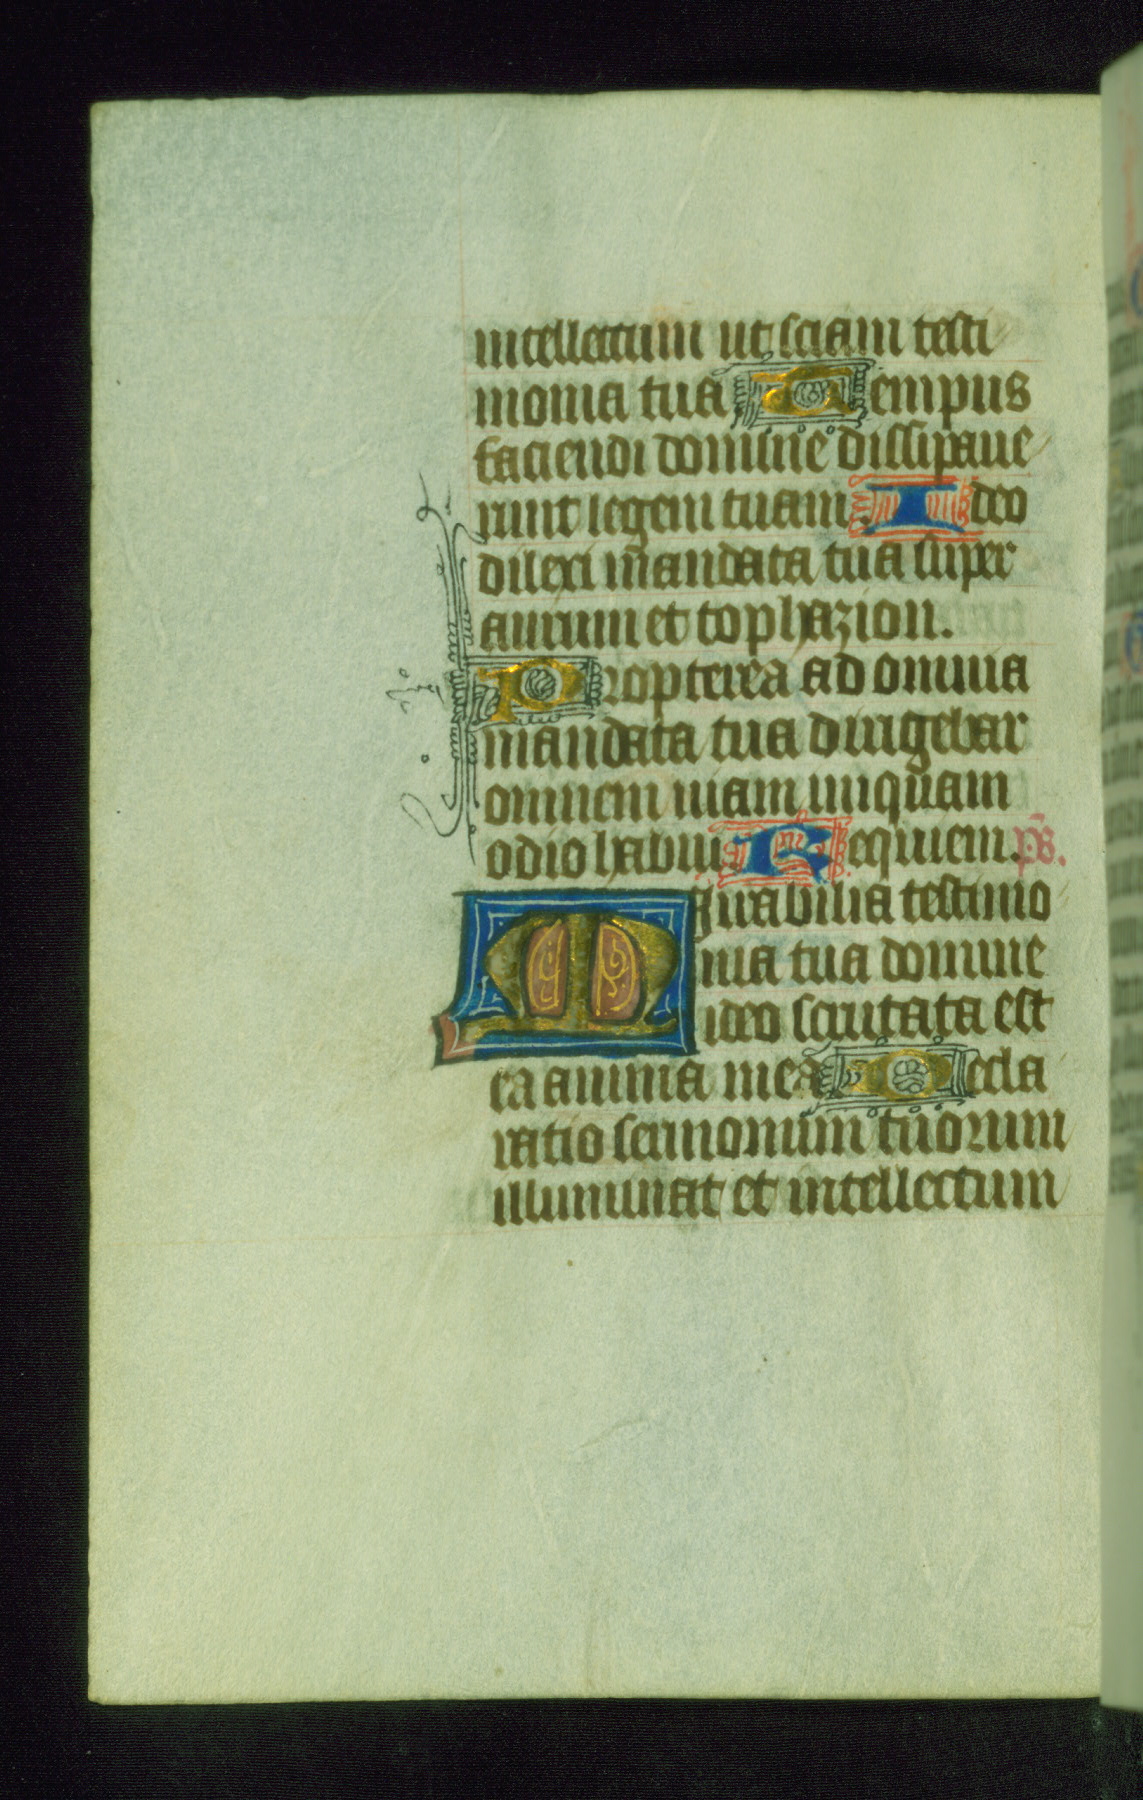 intellectum ut sciam testi
monia tua Tempus
faciendi domine dissipaue
runt legem tuam. Ideo
dilexi mandata tua super
aurum et tophazion.
Propterea ad omnia
mandata tua dirigebar
omnem uiam iniquam
odio habui. Requiem. ps.
Mirabilia testimo
nia tua domine
ideo scrutata est
ea anima mea Decla
ratio sermonum tuorum
illuminat et intellectum